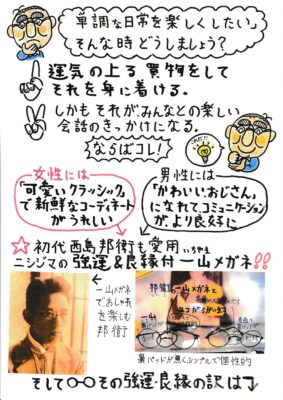 単調な日常を楽しくしたい。
そんな時どうしましょう？
運気の上る買物をして
それを身に着ける。
しかもそれが、みんなとの楽しい
会話のきっかけになる。
ならばコレ！
女性には
「可愛いクラッシック」
で新鮮なコーディネート
がうれしい
男性には
「かわいいおじさん」
になれて、コミュニケーション
が、より良好に
☆初代西島邦衛も愛用
ニシジマの強運&良縁付一山メガネ!!
一山メガネ
でおしゃれ
を楽しむ
邦衛
一山メガネと
ココがちがいます
鼻パッドが無く、シンプルで個性的
そして○○その強運・良縁の訳は↓